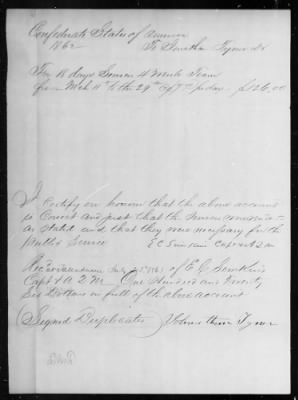 Confederate States of America
1862 To Jonathan Tyner Dr
For 18 days Service 4 Mule Team
from Mch 11th to the 29th @ $7 pr day $126,00
I Certify on honour that the above account
is Correct and just that the Services rendered
as stated and that they were necessary for the
Public Service E C Simkins Capt & A Q M
of E C Simkins
Capt & A Q M One Hundred and Twenty
Six Dollars in full of the above account
Signed Duplicates Johnathan Tyner